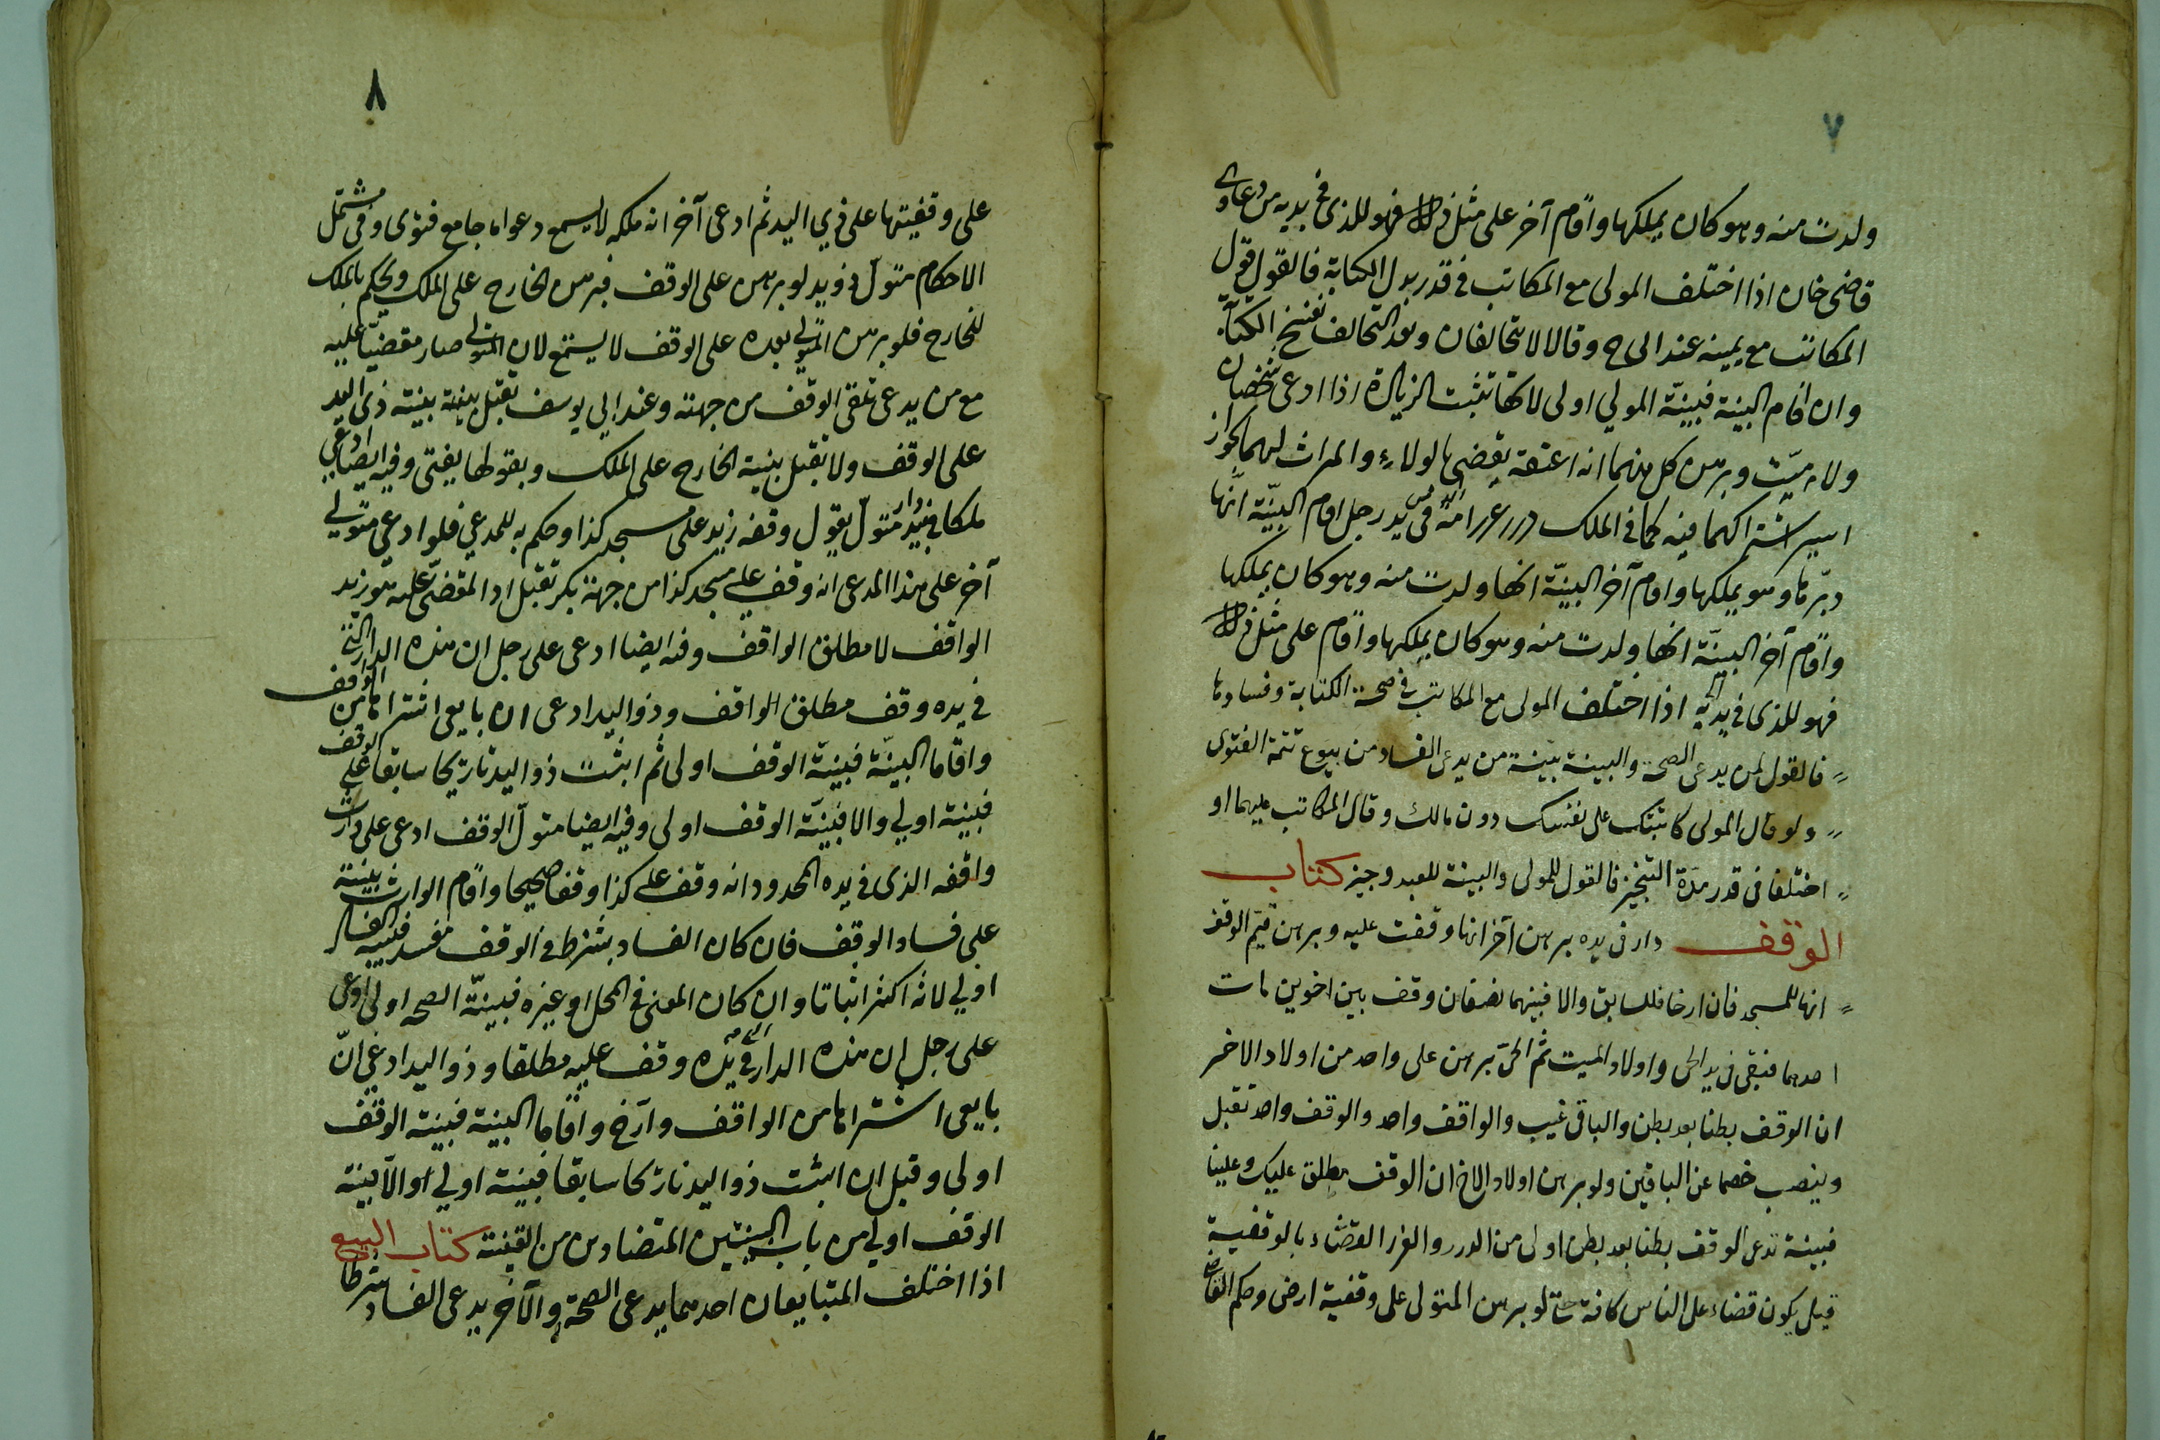 ٧
ولدت منه وهو كان يملكها واقام آخر على مثل ذلك فهو للذى فى يديه من دعاوى
قاضى خان اذا اختلف المولى مع المكاتب فى قدر بدل الكتابة فالقول قول
المكاتب مع يمينه عند ابى ح وقالا لا يتحالفان وبعد التحالف تفسخ الكتابة
وان اقام البينة فبينة المولي اولى لانها تثبت الزيادة اذا ادعى شخصان
ولاء ميّت وبرهن كل منهما انه اعتقه يقضى بالولاء والميراث لهما لجواز
اشتراكهما فيه كما فى الملك درر غرر امة فى يد رجل اقام البيّنة انّها
دبّرها وهو يملكها واقام آخر البينّة انها ولدت منه وهو كان يملكها
واقام آخر البينّة انها ولدت منه وهو كان يملكها واقام على مثل ذلك
فهو للذى فى يديه اذا اختلف المولى مع المكاتب فى صحة الكتابة وفسادها
فالقول لمن يدعى الصحة والبينة بينة من يدعى الفساد من بيوع تتمة الفتوى
ولو قال المولى كاتبتك على نفسك دون مالك وقال المكاتب عليهما او
اختلفا فى قدر مدّة التنجيز فالقول للمولى والبينة للعبد وجيز كتاب
الوقف دار فى يده برهن آخر انها وقفت عليه وبرهن قيّم الوقف
انها للمسجد فان ارخا فللسابق والا فبينهما نصفان وقف بين اخوين مات
احدهما فبقى فى يد الحى واولاد الميت ثم الحىّ برهن على واحد من اولاد الاخر
ان الوقف بطنا بعد بطن والباقى غيب والواقف واحد والوقف واحد تقبل
وينصب خصما عن الباقين ولو برهن اولاد الاخ ان الوقف مطلق عليك وعلينا
فبينة مدعى الوقف بطنا بعد بطن اولى من الدرر والغرر القضاء بالوقفية
قيل يكون قضاء على الناس كافة حتى لو برهن المتولى على وقفية ارض وحكم القاضى
٨
على وقفيتها على ذي اليد ثم ادعى آخر انه ملكه لا يسمع دعواه جامع فتوى وفى مشتمل
الاحكام متولّ ذو يد لو برهن على الوقف فبرهن الخارج على الملك ويحكم بالملك
للخارج فلو برهن المتولي بعده على الوقف لا يسمع لان المتولي صار مقضيّا عليه
مع من يدعى تلقى الوقف من جهته وعند ابي يوسف تقبل بينة ذى اليد
على الوقف ولا تقبل بينة الخارج على الملك وبقولهما يفتى وفيه ايضا ادعى
ملكا فى دار بيد متولّ يقول وقفه زيد على مسجد كذا وحكم به للمدعي فلو ادعي متولي
آخر على هذا المدعى انه وقف علي مسجد كذا من جهة بكر تقبل اذ المقضىّ عليه هو زيد
الواقف لا مطلق الواقف وفيه ايضا ادعى على رجل ان هذه الدار التى
فى يده وقف مطلق الواقف وذو اليد ادعى ان بايعى اشتراها من الواقف
واقاما البينّة فبينة الوقف اولى ثم اثبت ذو اليد تاريخا سابقا على الوقف
فبينة اولي والا فبينّة الوقف اولى وفيه ايضا متولّ الوقف ادعى على وارث
واقفه الذى فى يده المحدود انه وقف علي كذا وقفا صحيحا واقام الوارث بينة
على فساد الوقف فان كان الفساد بشرط فى الوقف مفسد فبينة الفساد
اولي لانه اكثر اثباتا وان كان المعنى فى المحل او غيره فبينّة الصحة اولى ادعى
على رجل ان هذه الدار التى فى يده وقف عليه مطلقا وذو اليد ادعي انّ
بايعى اشتراها من الواقف وارّخ واقاما البينة فبينة الوقف
اولى وقيل ان اثبت ذو اليد تاريخا سابقا فبينة اولي او الاّ فبينة
الوقف اولي من باب البينتين المتضادتين من القنية كتاب البيع
اذا اختلف المتبايعان احدهما يدعى الصحة والآخر يدعى الفساد بشرط